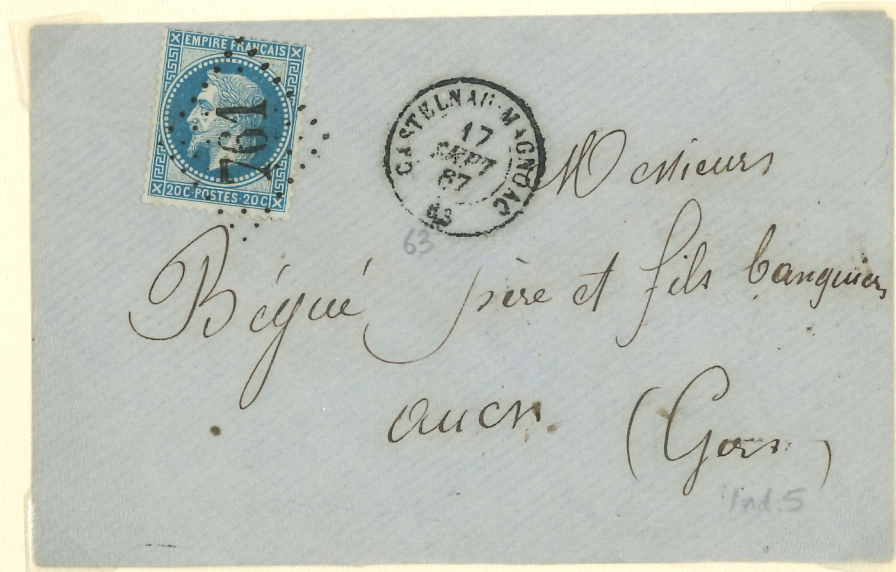 EMPIRE FRANÇAIS
761
20C·POSTES·20C
CASTELNAU-MAGNOAC
17
SEPT
67
63
63
Messieurs
Bégué père et fils banquiers
auch
(Gers)
Ind. 5